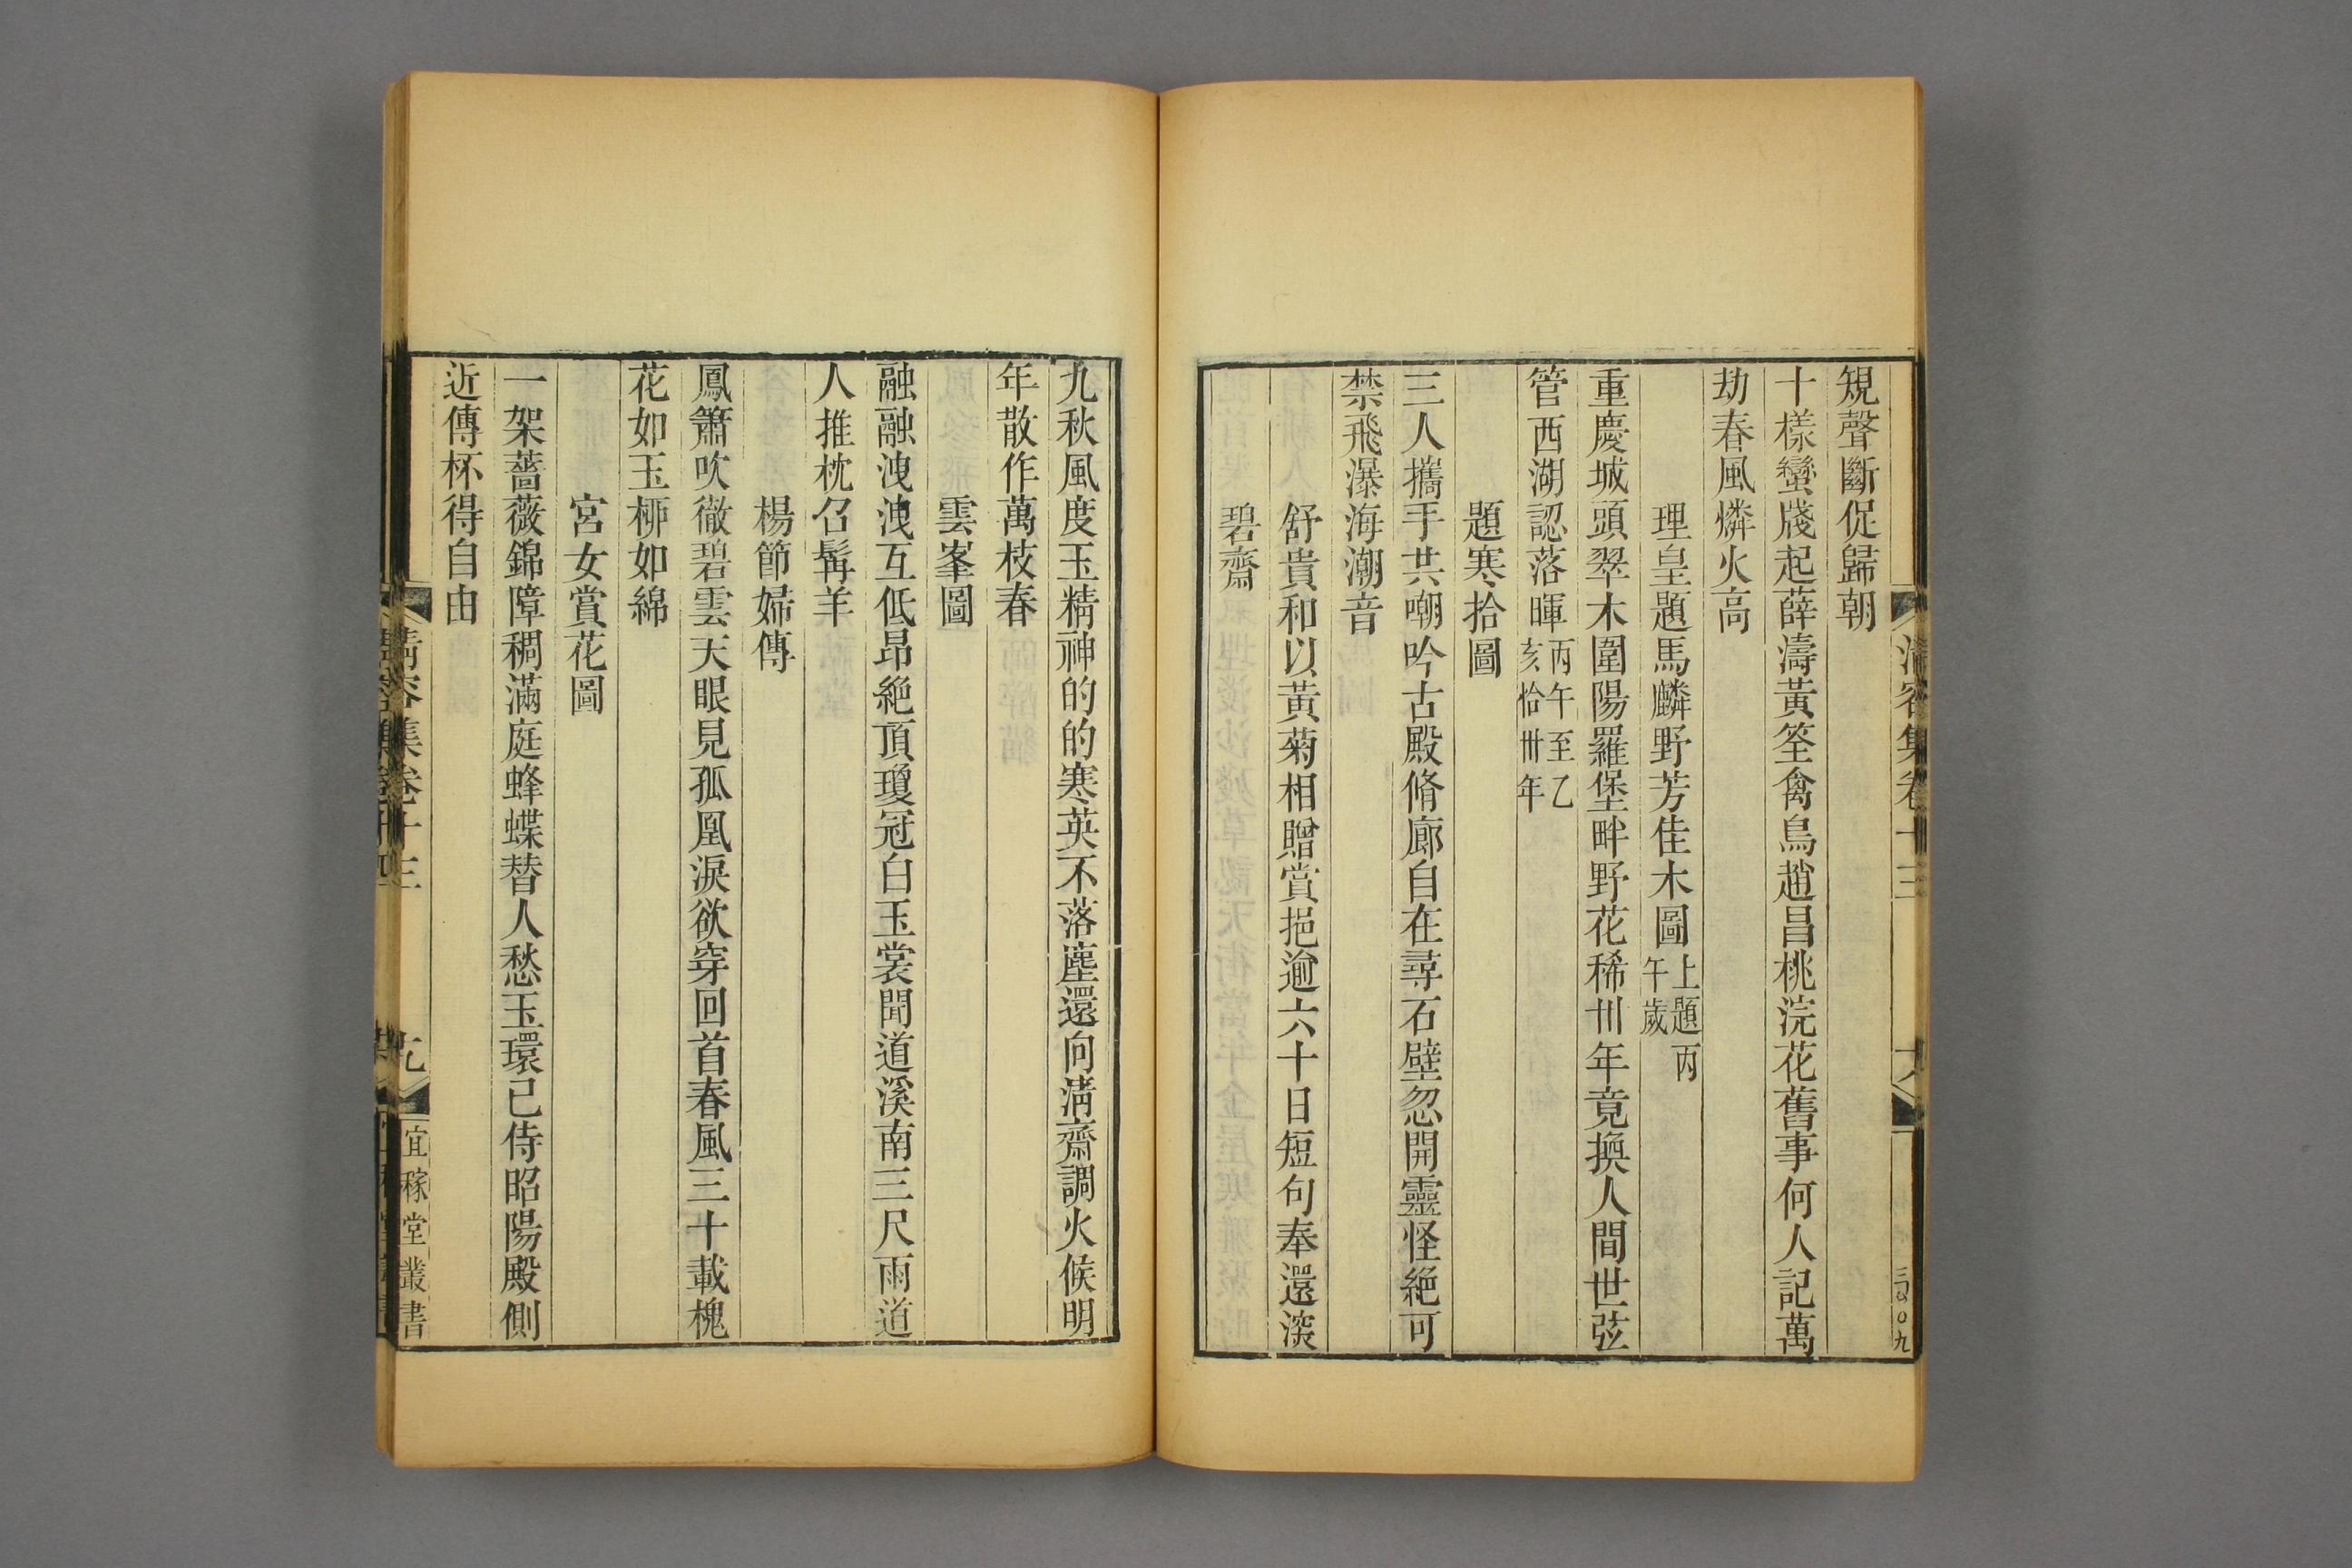 規聲斷促歸朝
十樣蠻牋起薛濤黃筌禽鳥趙昌桃浣花舊事何人記萬
劫春風燐火高
理皇題馬麟野芳佳木圖上題丙午歲
重慶城頭翠木圍陽羅堡畔野花稀卅年竟換人間世弦
管西湖認落暉丙午至乙亥恰卅年
題寒拾圖
三人攜手共嘲吟古殿脩廊自在尋石壁忽開靈怪絶可
禁飛瀑海潮音
舒貴和以黃菊相贈賞挹逾六十日短句奉還
碧齋
清容集卷十三
九秋風度玉精神的的寒英不落塵還向清齋調火候明
年散作萬枝春
雲峯圖
融融洩洩互低昂絶頂瓊冠白玉裳聞道溪南三尺雨道
人推枕召髯羊
楊節婦傳
鳳簫吹徹碧雲天眼見孤凰淚欲穿回首春風三十載槐
花如玉柳如綿
宮女賞花圖
一架薔薇錦障稠滿庭蜂蝶替人愁玉環已侍昭陽殿側
近傳杯得自由
清容集卷十三
宜稼堂叢書